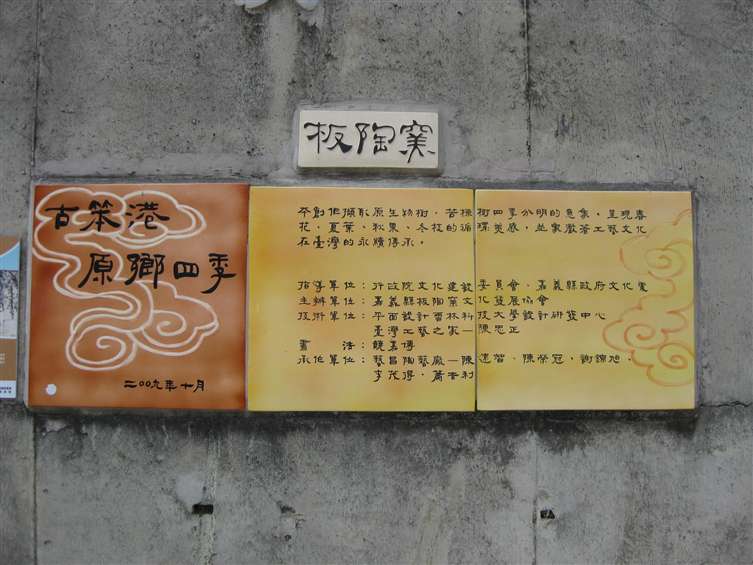 板陶窯
古笨港
原鄉四季
二〇〇九年十月
本創作擷取原生物樹，苦楝樹四季分明的意象，呈現春
花、夏葉、秋果、冬枝的循環美感，並象徵著工藝文化
在臺灣的永續傳承。
指導單位：行政院文化建設委員會、嘉義縣政府文化處
主辦單位：嘉義縣板陶窯文化發展協會
技術單位：平面設計雲林科技大學設計研發中心
臺灣工藝之家—陳忠正
書　　法：饒嘉博
承作單位：藝昌陶藝廠—陳建智、陳榮冠、謝錦旭、
李茂得、蕭杏利